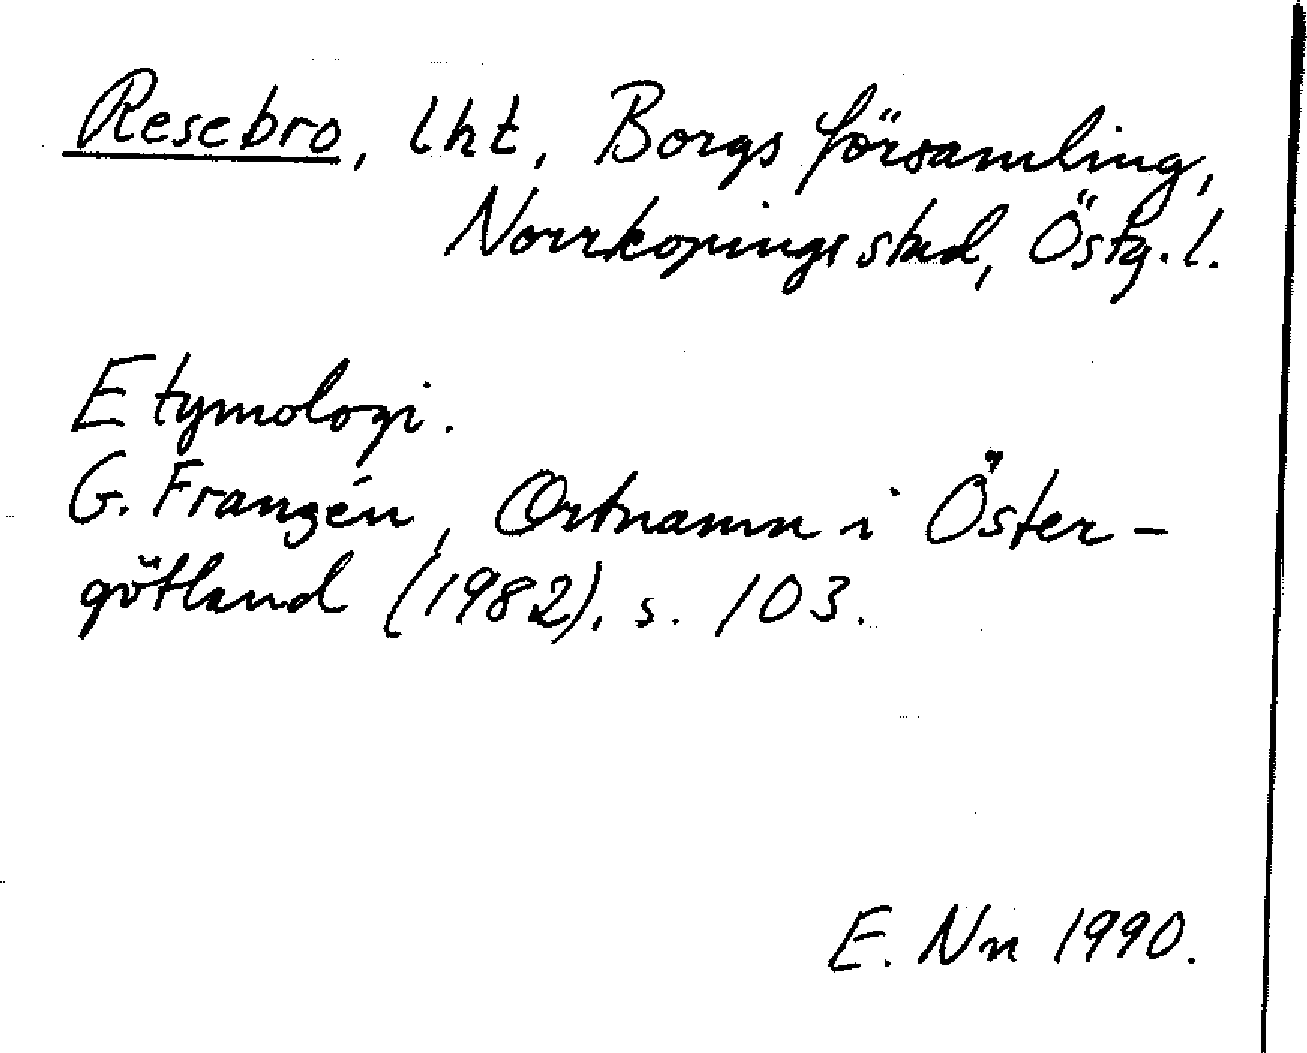 Resebro, lht, Borgs församling,
Norrkopings stad, Östg. l.
Etymologi.
G. Franzén, Ortnamn i Öster-
götland (1982), s. 103.
E. Nn 1990.